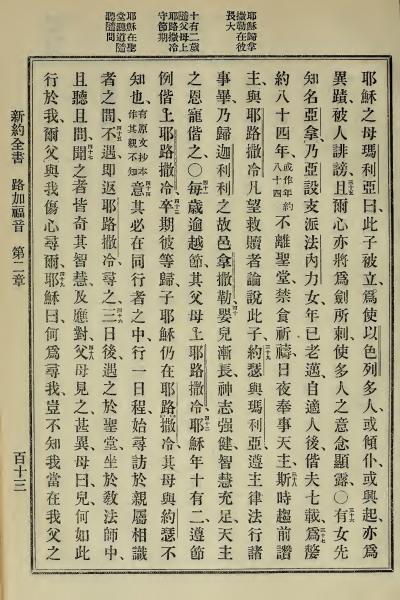 耶穌歸拿
撒勒在彼
長大
十有二歲
隨父母上
耶路撒冷
守節期
耶穌在聖
堂聽道隨
聽隨問
耶穌之母瑪利亞曰、此子被立、爲使以色列多人、或傾仆、或興起、亦爲
異蹟被人誹謗、且爾心亦將爲劍所刺、使多人之意念顯露、○三十六有女先
知名亞拿、乃亞設支派法內力女、年已老邁、自適人後、偕夫七載、三十七爲嫠
約八十四年、或作年約八十四不離聖堂、禁食祈禱、日夜奉事天主、三十八斯時趨前、讚
主、與耶路撒冷凡望救贖者論說此子、三十九約瑟與瑪利亞遵主律法、行諸
事畢、乃歸迦利利之故邑拿撒勒、四十嬰兒漸長、神志强健、智慧充足、天主
之恩寵偕之、○四十一每歲逾越節、其父母上耶路撒冷、四十二耶穌年十有二、遵節
例偕上耶路撒冷、四十三卒期、彼等歸、子耶穌仍在耶路撒冷、其母與約瑟不
知也、有原文抄本作其親不知四十四意其必在同行者之中、行一日程、始尋訪於親屬相識
者之間、四十五不遇、卽返耶路撒冷尋之、四十六三日後遇之於聖堂、坐於敎法師中、
且聽且問、四十七聞之者皆奇其智慧、及應對、四十八父母見之甚異、母曰、兒何如此
行於我、爾父與我傷心尋爾、四十九耶穌曰、何爲尋我、豈不知我當在我父之
新約全書 路加福音 第二章 百十三